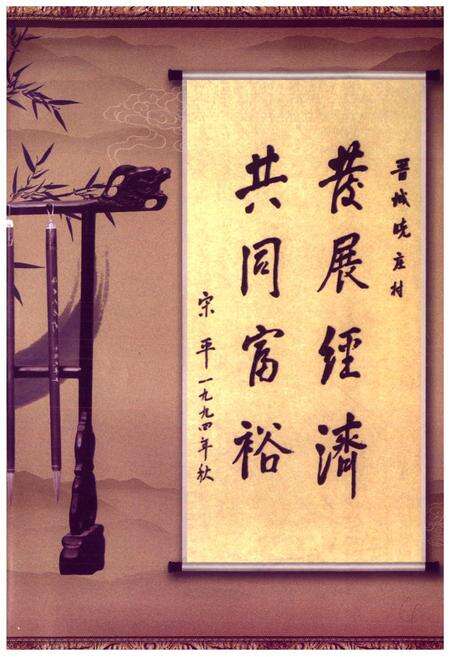 晋城晓庄村
发展经濟
共同富裕
宋平一九九四年秋